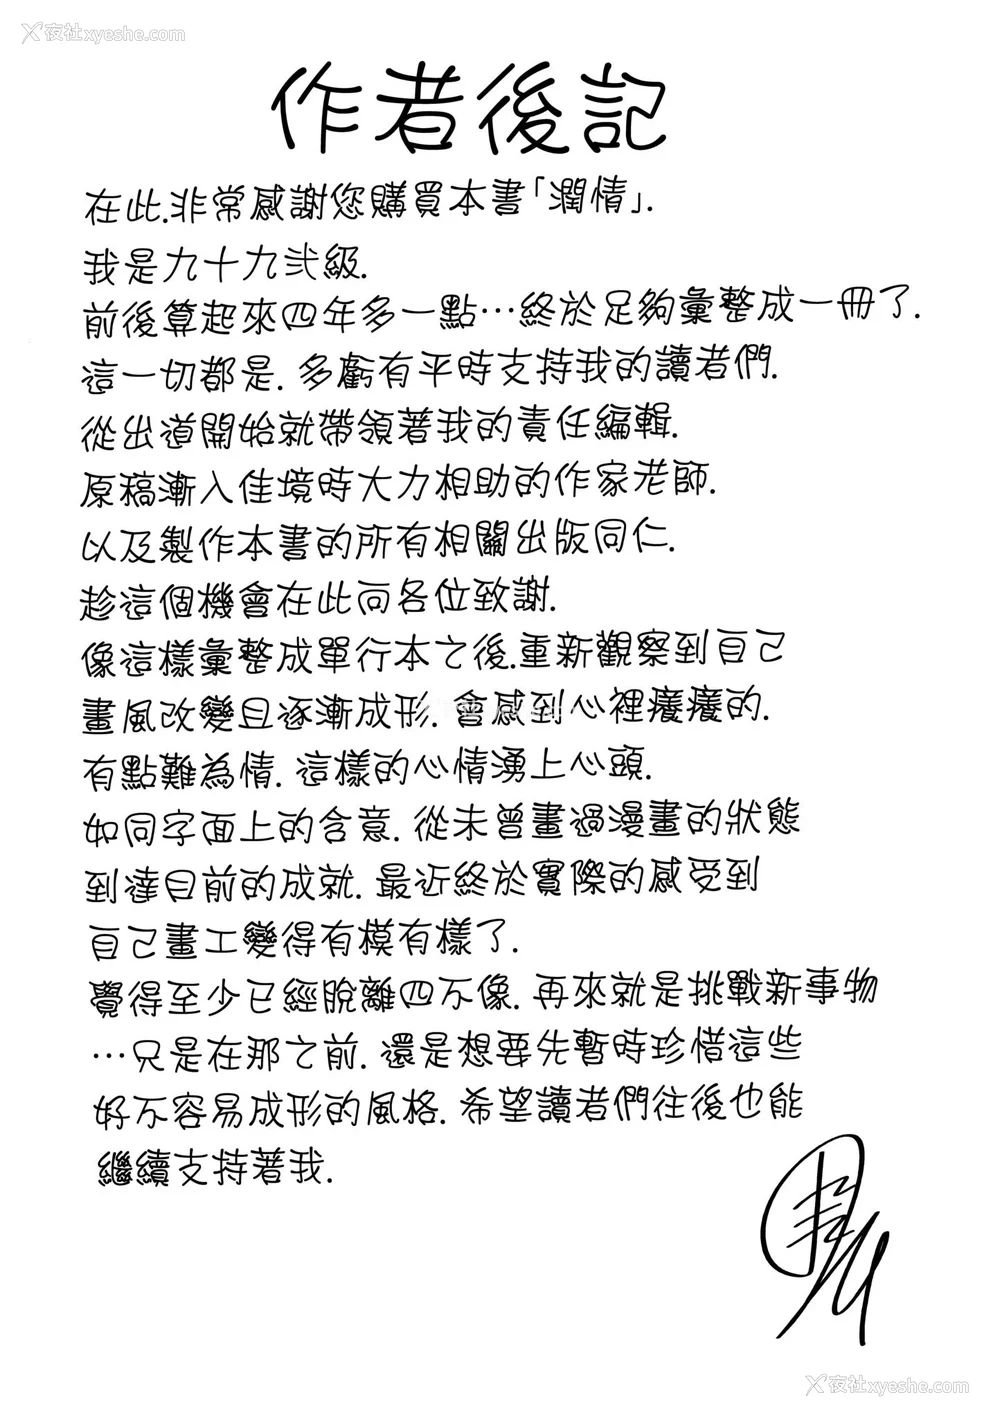 夜社xyeshe.com
作者後記
在此.非常感謝您購買本書「潤情」.
我是九十九弐級.
前後算起來四年多一點…終於足夠彙整成一冊了.
這一切都是.多虧有平時支持我的讀者們.
從出道開始就帶領著我的責任編輯.
原稿漸入佳境時大力相助的作家老師.
以及製作本書的所有相關出版同仁.
趁這個機會在此向各位致謝.
像這樣彙整成單行本之後.重新觀察到自己
畫風改變且逐漸成形.會感到心裡癢癢的.
有點難為情.這樣的心情湧上心頭.
如同字面上的含意.從未曾畫過漫畫的狀態
到達目前的成就.最近終於實際的感受到
自己畫工變得有模有樣了.
覺得至少已經脫離四不像.再來就是挑戰新事物
…只是在那之前.還是想要先暫時珍惜這些
好不容易成形的風格.希望讀者們往後也能
繼續支持著我.
夜社xyeshe.com